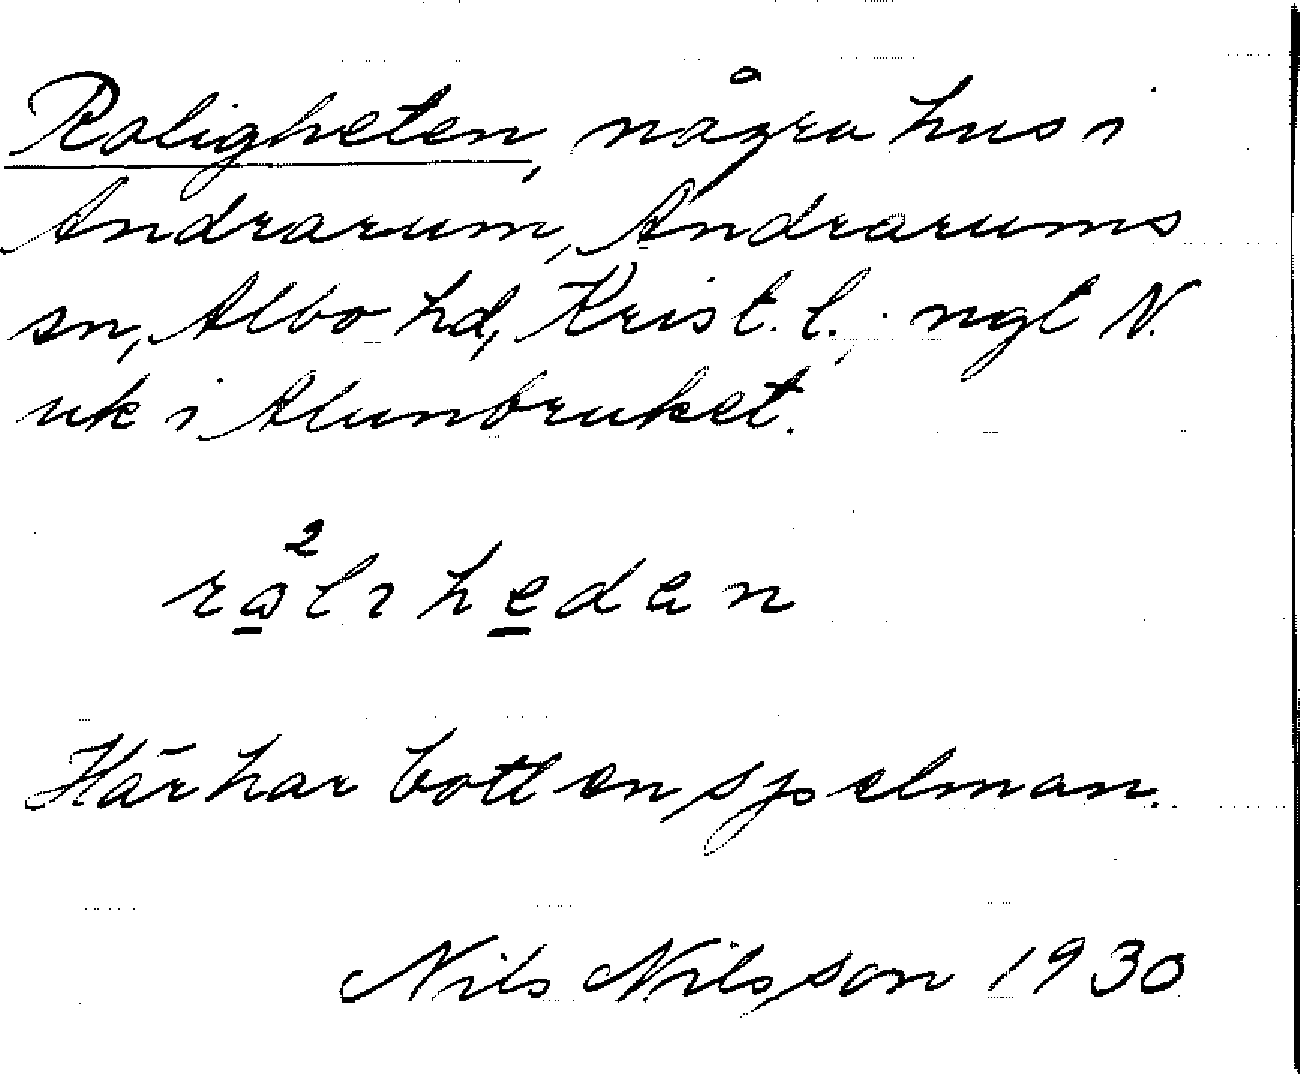 Roligheten, några hus i
Andrarum, Andrarums
sn, Albo hd, Krist. l.; ngt N.
uk i Alunbruket.
Här har bott en spelman.
Nils Nilsson 1930